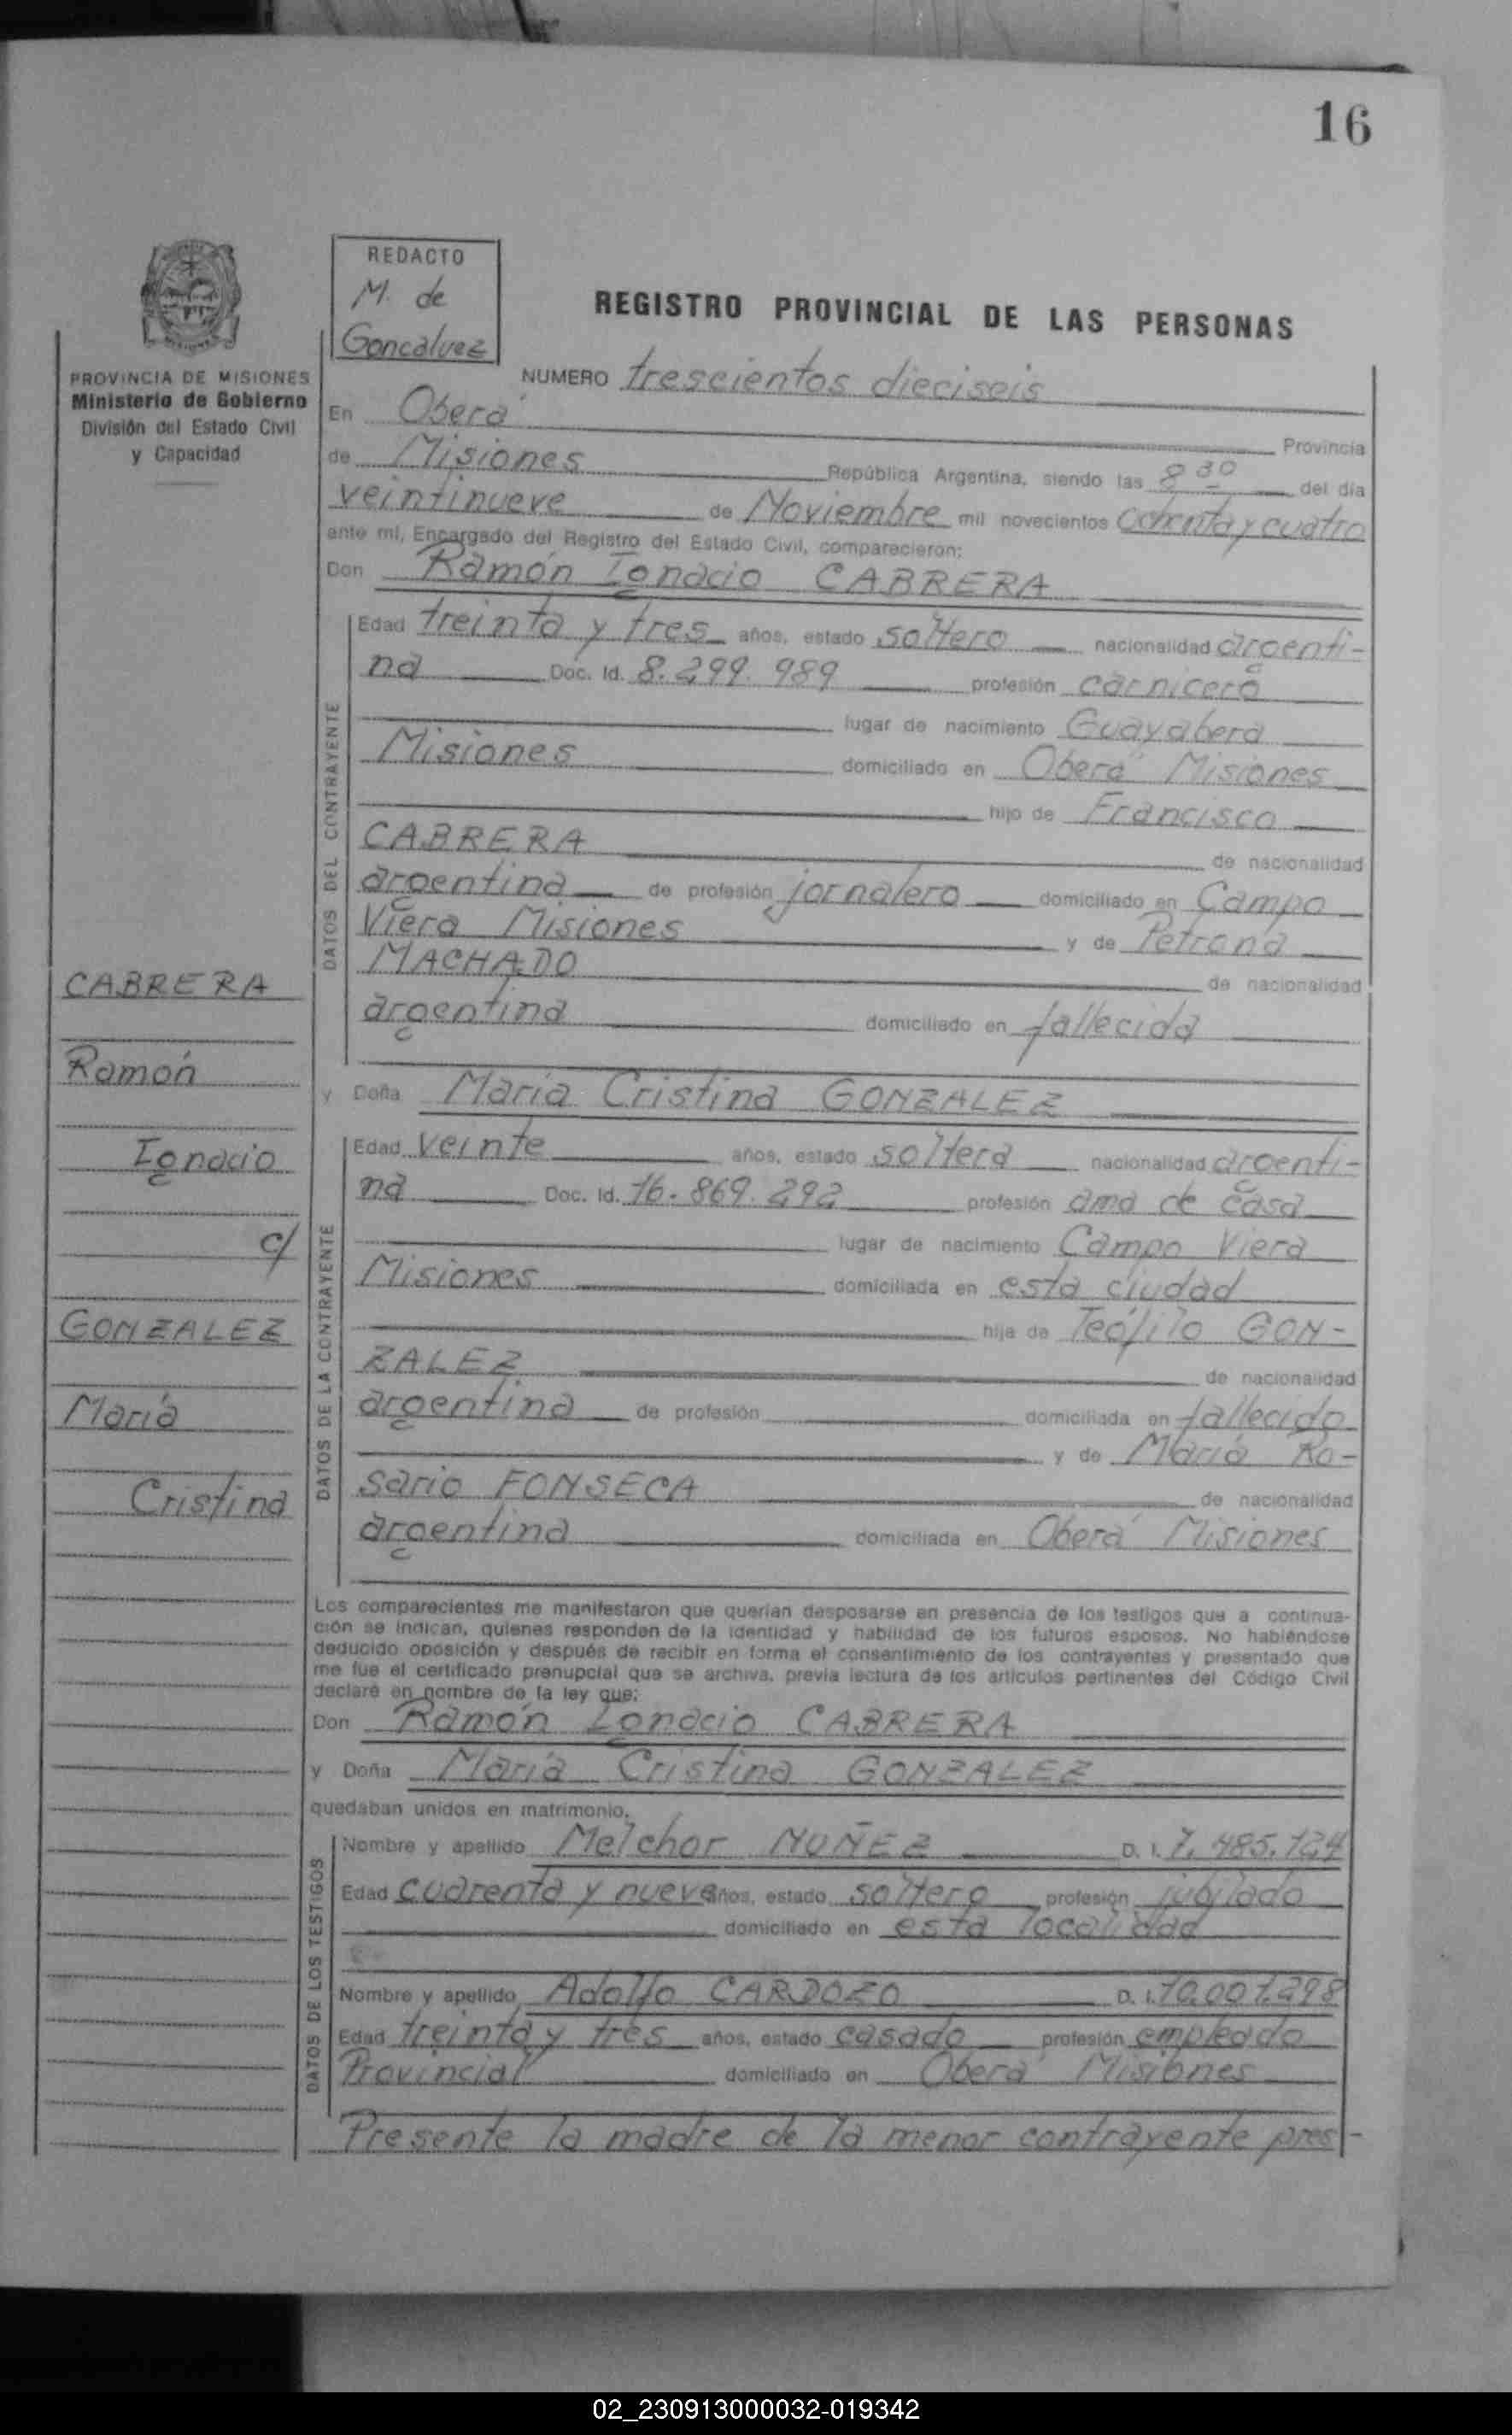 16
REDACTO
M. de
Goncalvez
REGISTRO PROVINCIAL DE LAS PERSONAS
PROVINCIA DE MISIONES
Ministerio de Gobierno
División del Estado Civil
y Capacidad
NUMERO trescientos dieciseis
En Oberá Provincia
de Misiones República Argentina, siendo las 8 30 del día
veintinueve de Noviembre mil novecientos Ochenta y cuatro
ante mí, Encargado del Registro del Estado Civil, comparecieron:
Don Ramón Ignacio CABRERA
DATOS DEL CONTRAYENTE
Edad treinta y tres años, estado soltero nacionalidad argenti-
na Doc. Id. 8.299.989 profesión carnicero
lugar de nacimiento Guayabera
Misiones domiciliado en Oberá Misiones
hijo de Francisco
CABRERA de nacionalidad
argentina de profesión jornalero domiciliado en Campo
Viera Misiones y de Petrona
MACHADO de nacionalidad
argentina domiciliado en fallecida
y Doña María Cristina GONZALEZ
DATOS DE LA CONTRAYENTE
Edad veinte años, estado soltera nacionalidad argenti-
na Doc. Id. 16.869.292 profesión ama de casa
lugar de nacimiento Campo Viera
Misiones domiciliada en esta ciudad
hija de Teófilo GON-
ZALEZ de nacionalidad
argentina de profesión domiciliada en fallecido
y de María Ro-
sario FONSECA de nacionalidad
argentina domiciliada en Oberá Misiones
CABRERA
Ramón
Ignacio
c/
GONZALEZ
María
Cristina
Los comparecientes me manifestaron que querían desposarse en presencia de los testigos que a continua-
ción se indican, quienes responden de la identidad y habilidad de los futuros esposos. No habiéndose
deducido oposición y después de recibir en forma el consentimiento de los contrayentes y presentado que
me fue el certificado prenupcial que se archiva, previa lectura de los artículos pertinentes del Código Civil
declaré en nombre de la ley que:
Don Ramón Ignacio CABRERA
y Doña María Cristina GONZALEZ
quedaban unidos en matrimonio.
DATOS DE LOS TESTIGOS
Nombre y apellido Melchor NUÑEZ D. I. 7.485.124
Edad cuarenta y nueve años, estado soltero profesión jubilado
domiciliado en esta localidad
Nombre y apellido Adolfo CARDOZO D. I. 10.007.298
Edad treinta y tres años, estado casado profesión empleado
Provincial domiciliado en Oberá Misiones
Presente la madre de la menor contrayente pres-
02_230913000032-019342